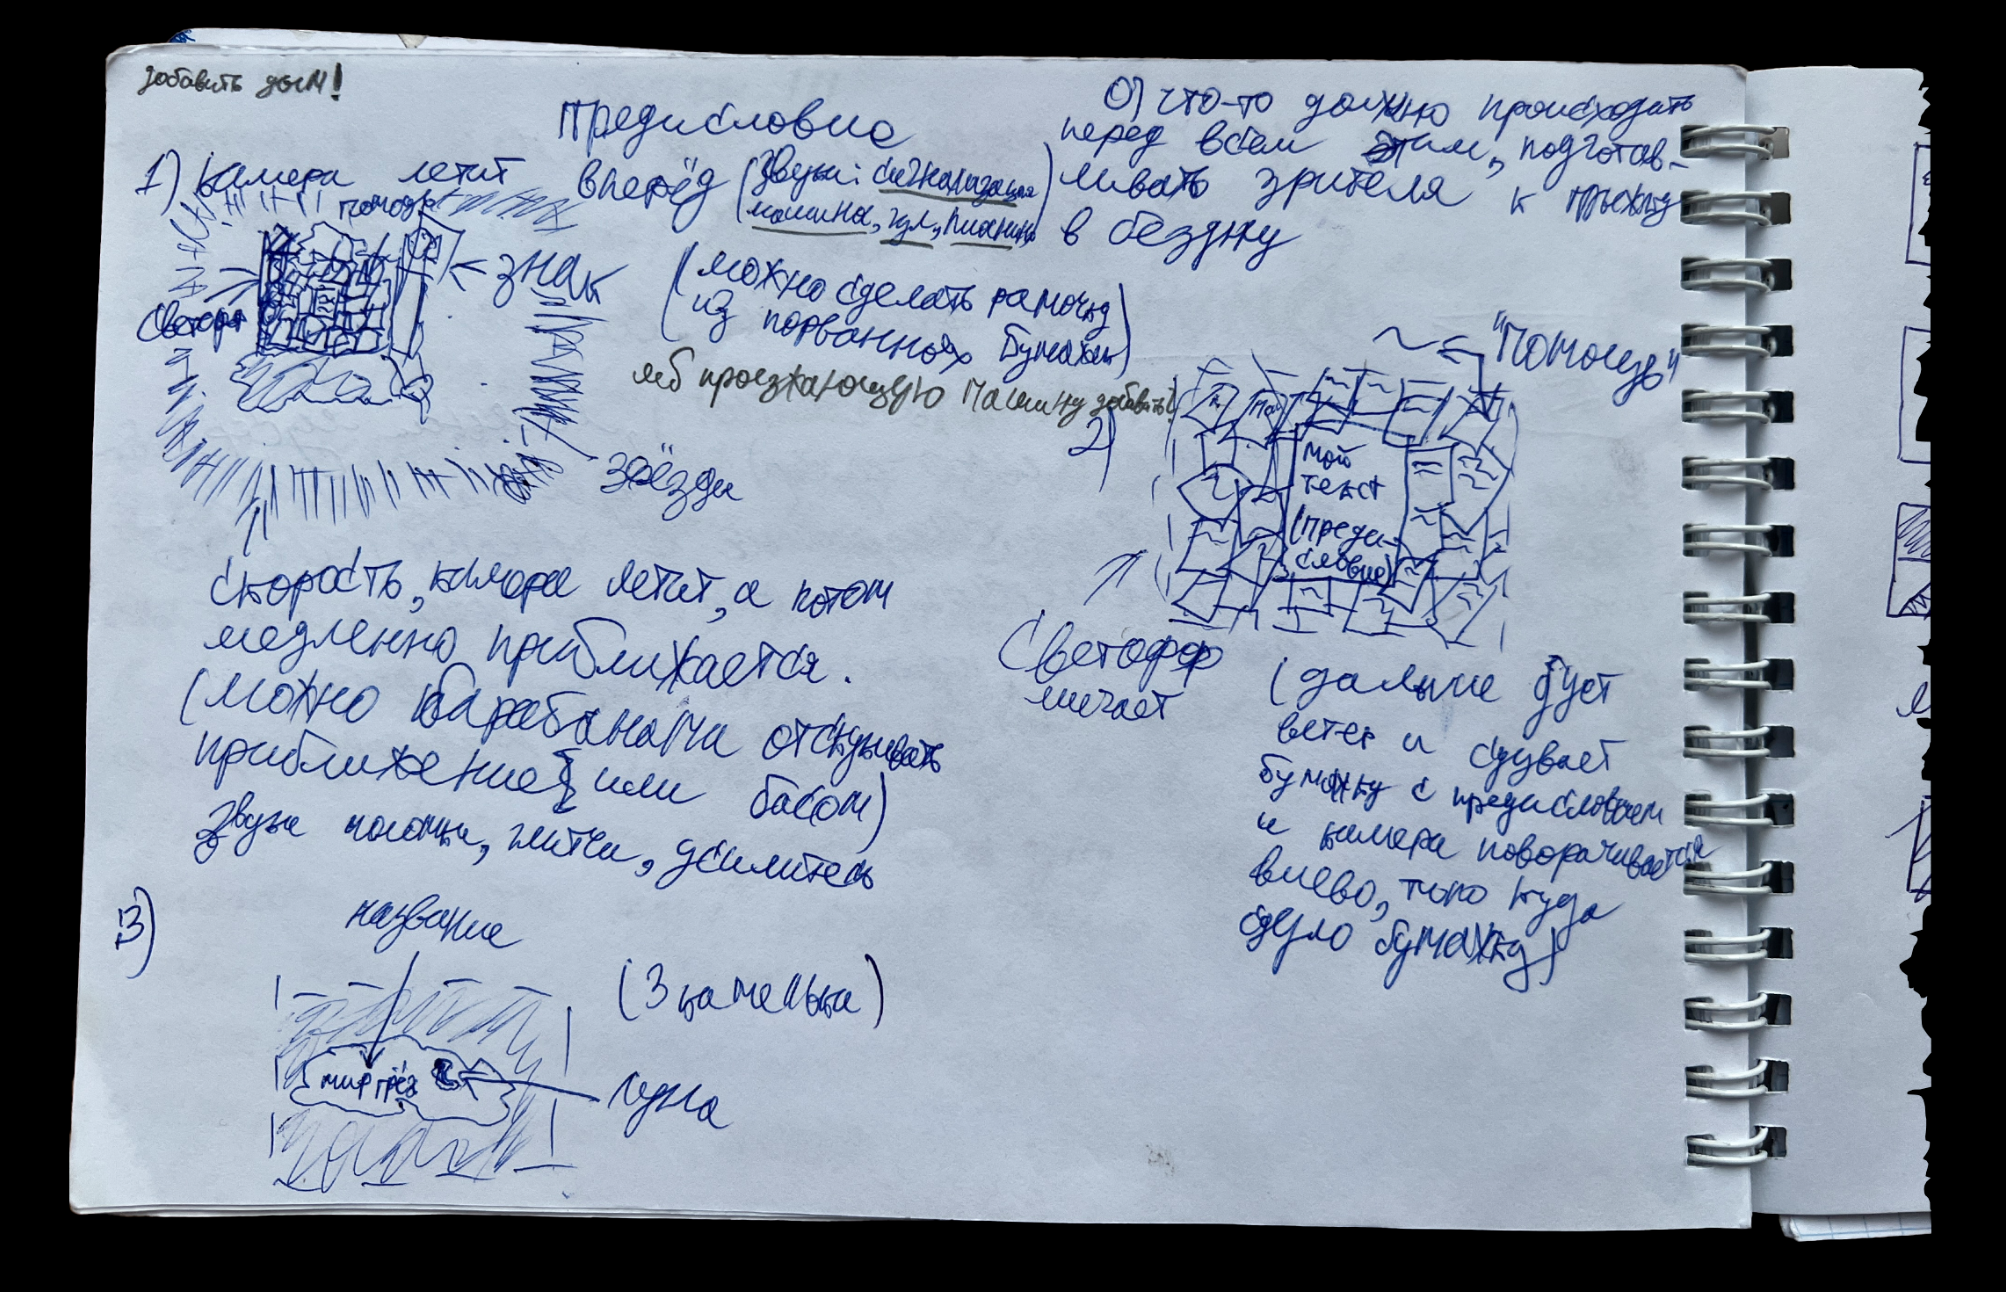 добавить дым!
Предисловие
0) что-то должно происходить
перед всем этим, подготав-
ливать зрителя к прыжку
в бездну
1) камера летит вперёд (звуки: сигнализация
машина, гул, пианино)
помощь
знак
светофор
(можно сделать рамочку
из порванных бумажек)
мб проезжающую машину добавить!
звёзды
скорость, камера летит, а потом
медленно приближается.
(можно барабанами отстукивать
приближение или басом)
звуки помощи, глитчи, усилитесь
2)
"Помощь"
мой
текст
(преди-
словие)
Светофор
мигает
(дальше дует
ветер и сдувает
бумажку с предисловием
и камера поворачивается
влево, типо куда
сдуло бумажку)
3)
название
(3 камелька)
мир грёз
луна